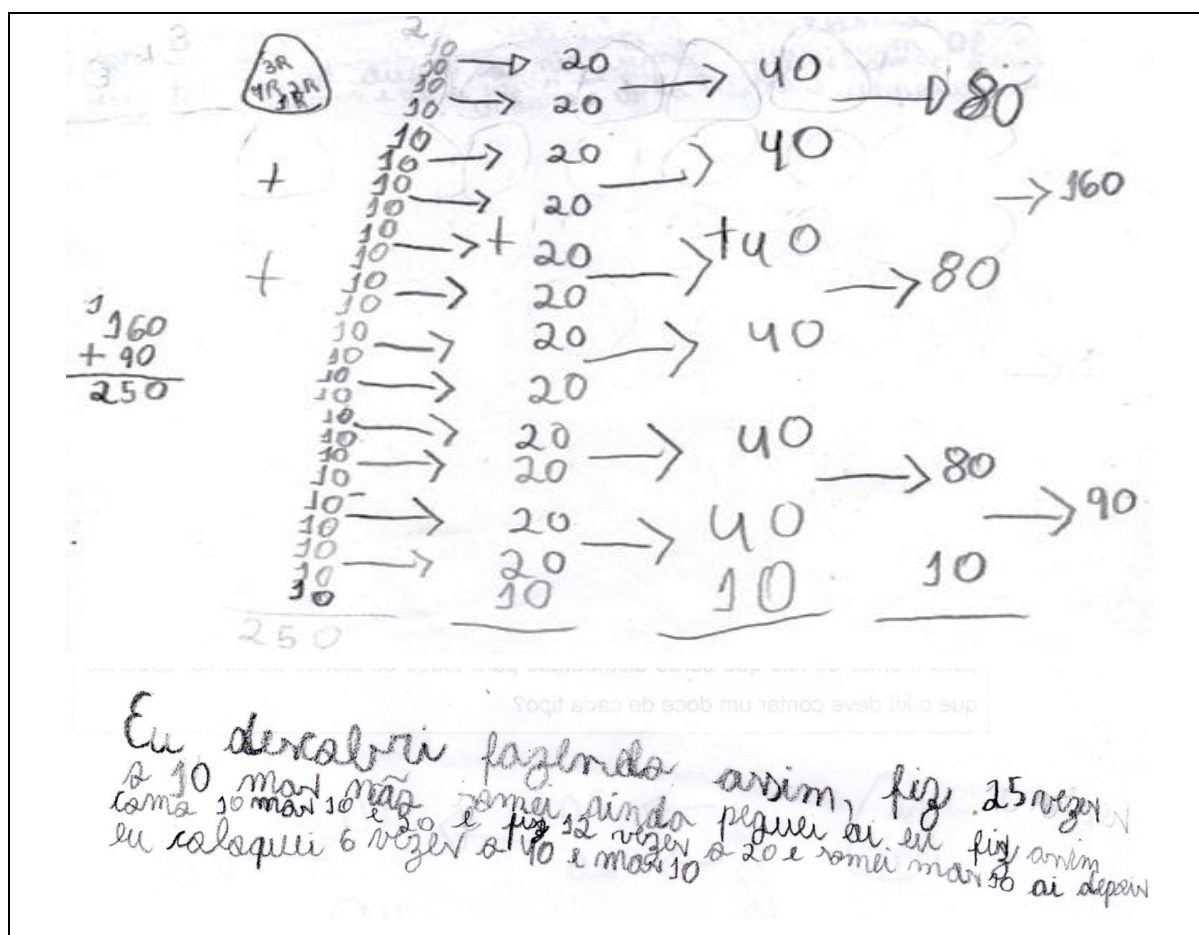 3R
4R 2R
1R
2
10
10 20 40 80
10
10 20
10
10 20 40
10
10 20 160
+
10
10 + 20 + 40 80
+
10
10 20
10
10 20 40
10
10 20
10
10 20 40
10
10 20 80
10
10 20 40 90
10
10 20
10 10 10 10
250
1
160
+ 90
250
Eu descobri fazendo assim, fiz 25 vezes
o 10 mas não somei ainda peguei ai eu fiz assim
como 10 mas 10 é 20 e fiz 12 vezes o 20 e somei mas 10 ai depois
eu coloquei 6 vezes o 40 e mas 10